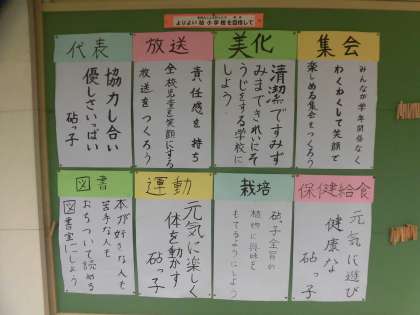 よりよい砧小学校を目指して
代表
協力し合い
優しさいっぱい
砧っ子
放送
責任感を持ち
全校児童を笑顔にする
放送をつくろう
美化
清潔ですみず
みまできれいにそ
うじをする学校に
しよう
集会
みんなが学年関係なく
わくわくして笑顔で
楽しめる集会をつくろう
図書
本が好きな人も
苦手な人も
おちついて読める
図書室にしよう
運動
元気に楽しく
体を動かす
砧っ子
栽培
砧っ子全員の
植物に興味を
もてるようにしよう
保健給食
元気に遊び
健康な
砧っ子